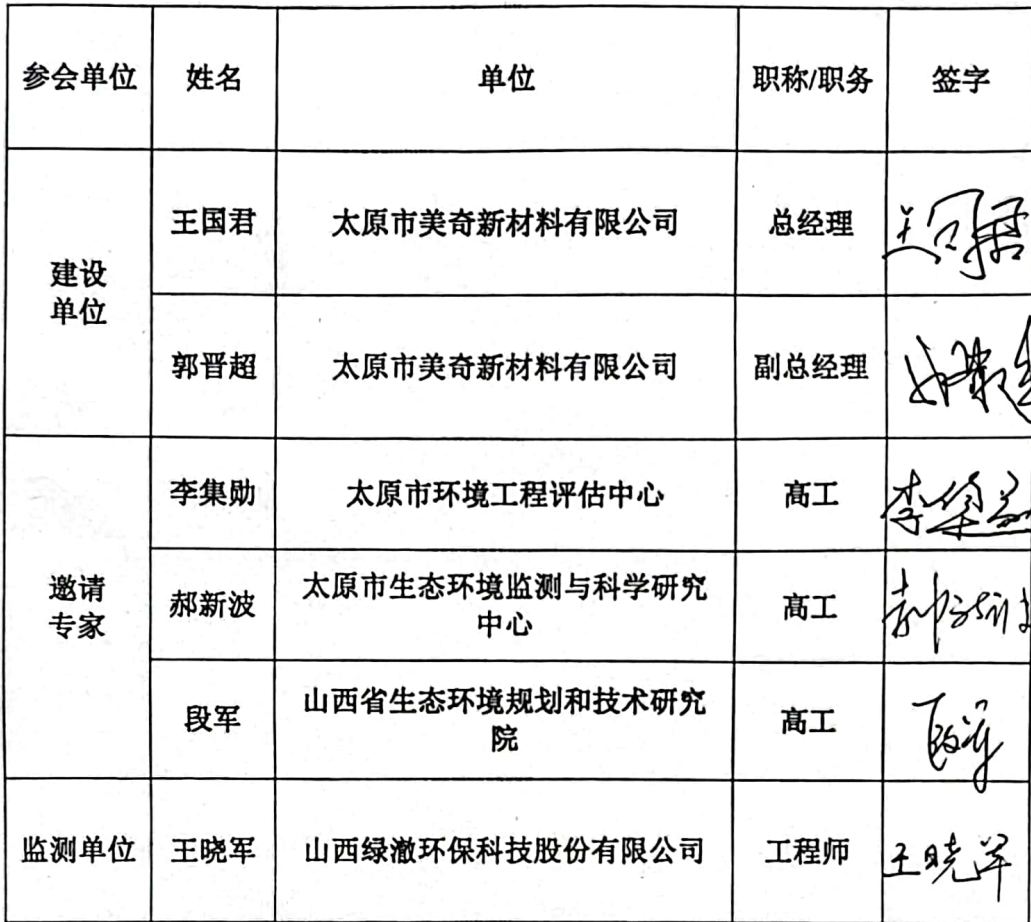 参会单位 姓名 单位 职称/职务 签字
建设
单位
王国君 太原市美奇新材料有限公司 总经理 王国君
郭晋超 太原市美奇新材料有限公司 副总经理
邀请
专家
李集勋 太原市环境工程评估中心 高工 李集勋
郝新波 太原市生态环境监测与科学研究
中心 高工 郝新波
段军 山西省生态环境规划和技术研究
院 高工 段军
监测单位 王晓军 山西绿澈环保科技股份有限公司 工程师 王晓军